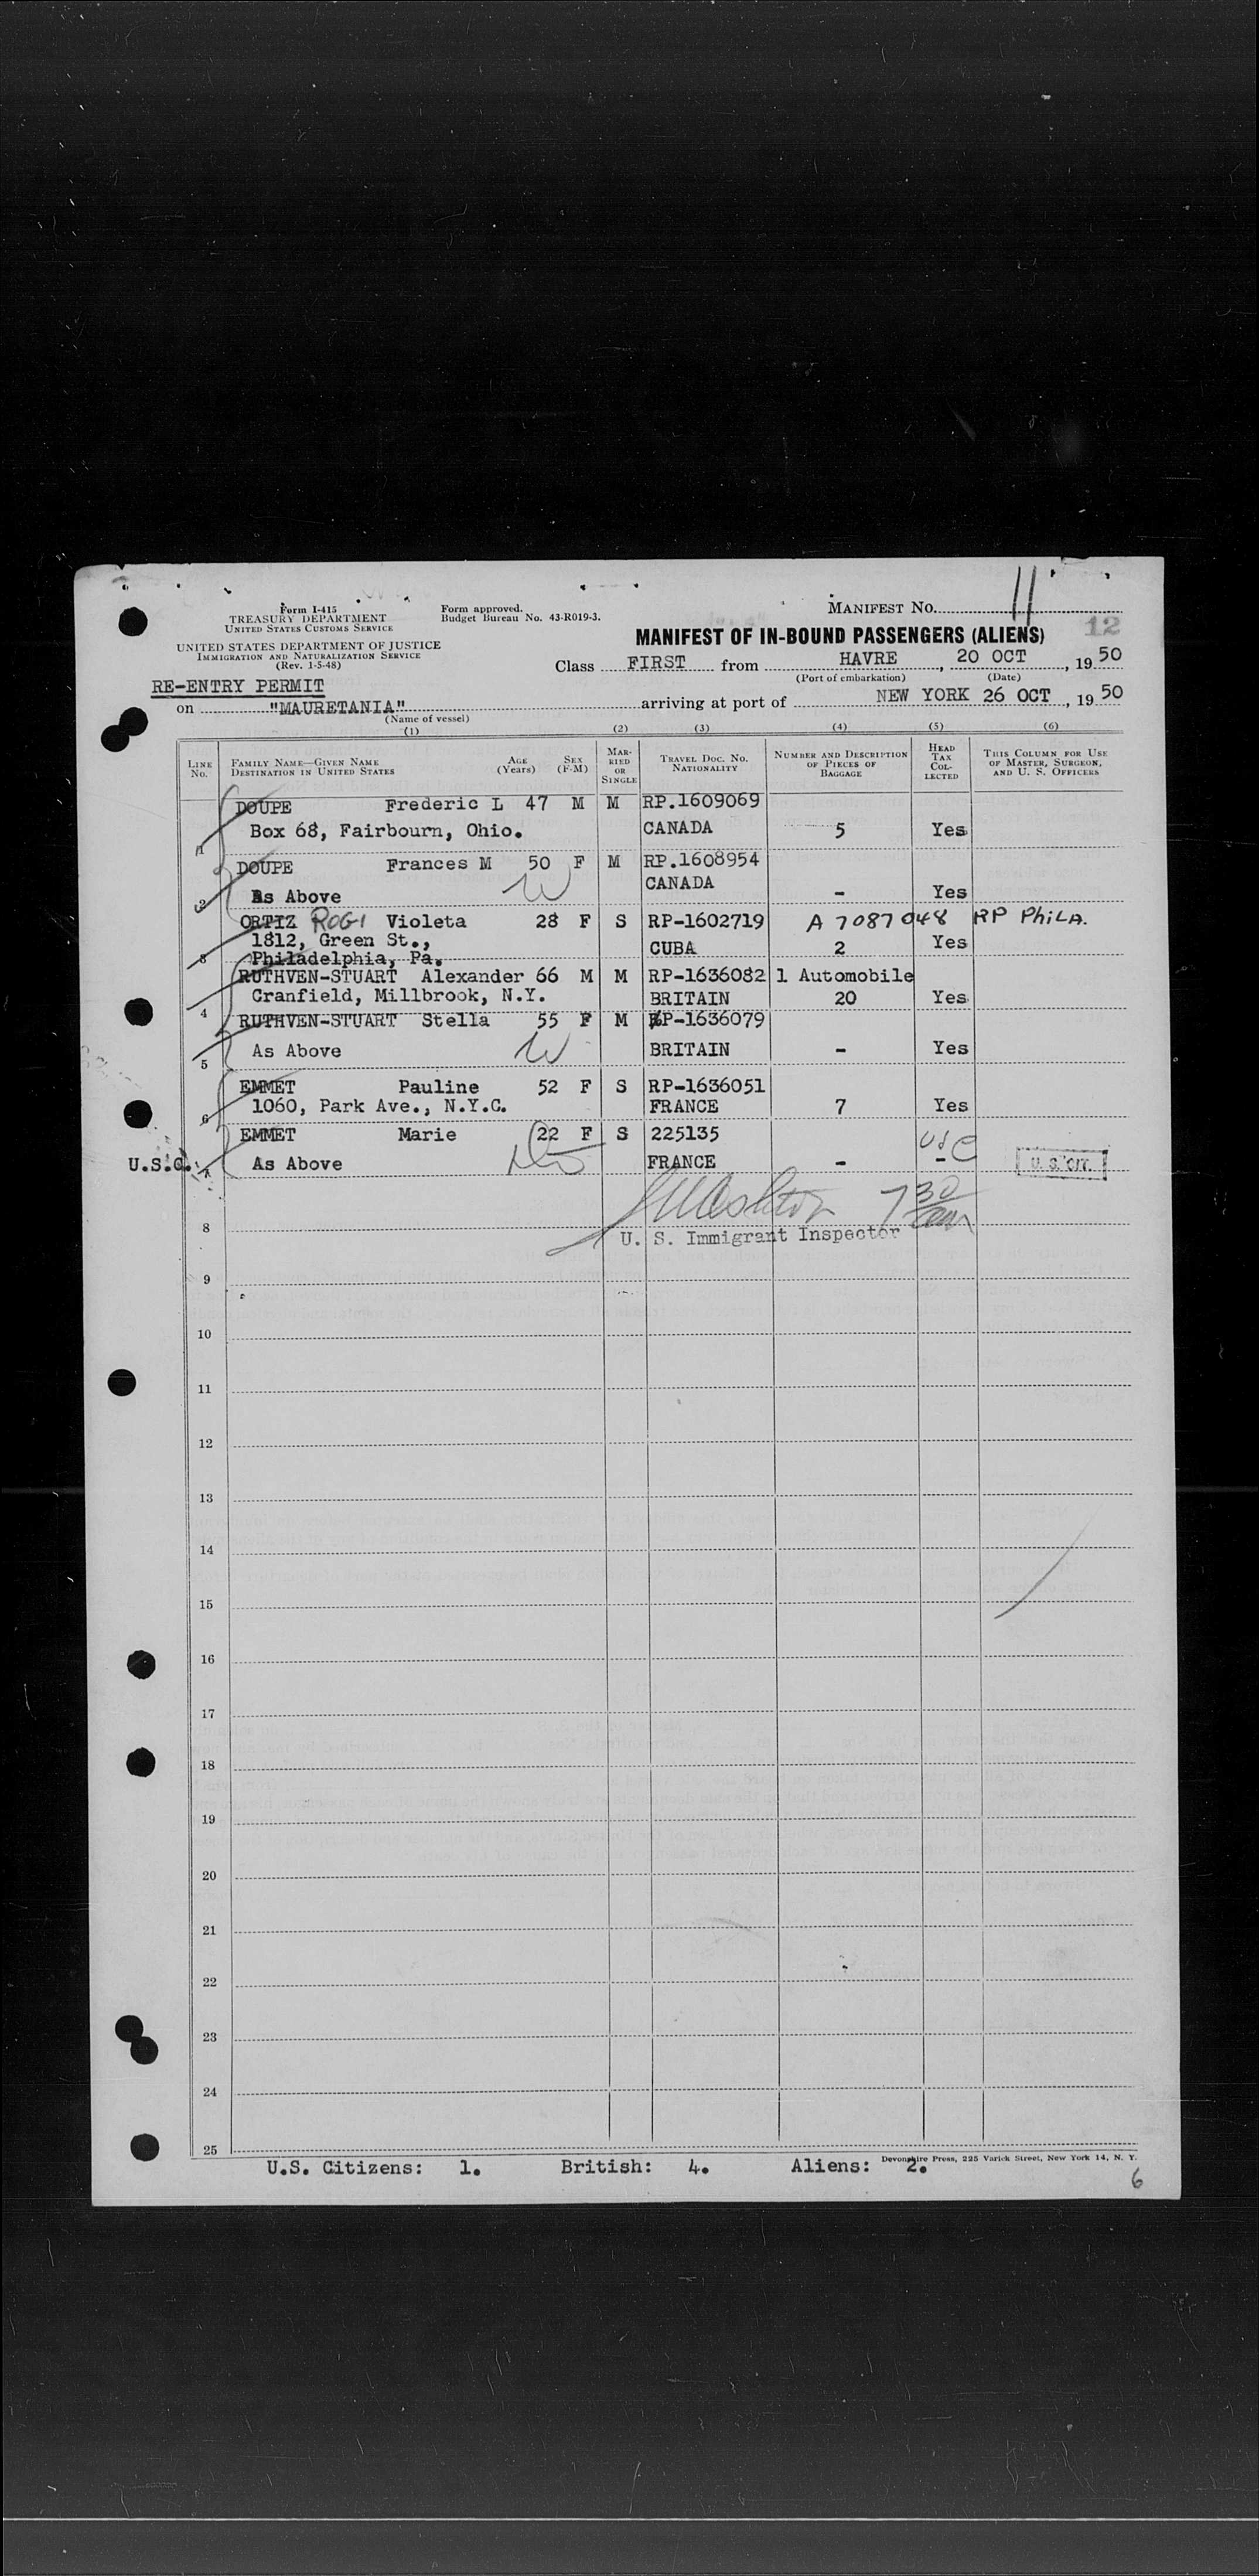 Form I-415
TREASURY DEPARTMENT
UNITED STATES CUSTOMS SERVICE
Form approved.
Budget Bureau No. 43-R019-3.
MANIFEST No. 11
12
UNITED STATES DEPARTMENT OF JUSTICE
IMMIGRATION AND NATURALIZATION SERVICE
(Rev. 1-5-48)
MANIFEST OF IN-BOUND PASSENGERS (ALIENS)
Class FIRST from HAVRE, 20 OCT, 1950
(Port of embarkation) (Date)
RE-ENTRY PERMIT
on "MAURETANIA" arriving at port of NEW YORK 26 OCT, 1950
(Name of vessel)
(1) (2) (3) (4) (5) (6)
LINE No. FAMILY NAME—GIVEN NAME DESTINATION IN UNITED STATES AGE (Years) SEX (F-M) MARRIED OR SINGLE TRAVEL DOC. NO. NATIONALITY NUMBER AND DESCRIPTION OF PIECES OF BAGGAGE HEAD TAX COLLECTED THIS COLUMN FOR USE OF MASTER, SURGEON, AND U. S. OFFICERS
DOUPE Frederic L 47 M M RP.1609069
1 Box 68, Fairbourn, Ohio. CANADA 5 Yes
DOUPE Frances M 50 F M RP.1608954
2 As Above W CANADA - Yes
ORTIZ ROGI Violeta 28 F S RP-1602719 A 7087048 RP PHILA.
1812, Green St., CUBA 2 Yes
3 Philadelphia, Pa.
RUTHVEN-STUART Alexander 66 M M RP-1636082 1 Automobile
Cranfield, Millbrook, N.Y. BRITAIN 20 Yes
4
RUTHVEN-STUART Stella 55 F M RP-1636079
5 As Above W BRITAIN - Yes
EMMET Pauline 52 F S RP-1636051
6 1060, Park Ave., N.Y.C. FRANCE 7 Yes
EMMET Marie 22 F S 225135 USC
U.S.C. 7 As Above FRANCE - - U. S. CIT.
7 30 am
8 U. S. Immigrant Inspector
9
10
11
12
13
14
15
16
17
18
19
20
21
22
23
24
25
U.S. Citizens: 1. British: 4. Aliens: 2.
Devonshire Press, 225 Varick Street, New York 14, N. Y.
6